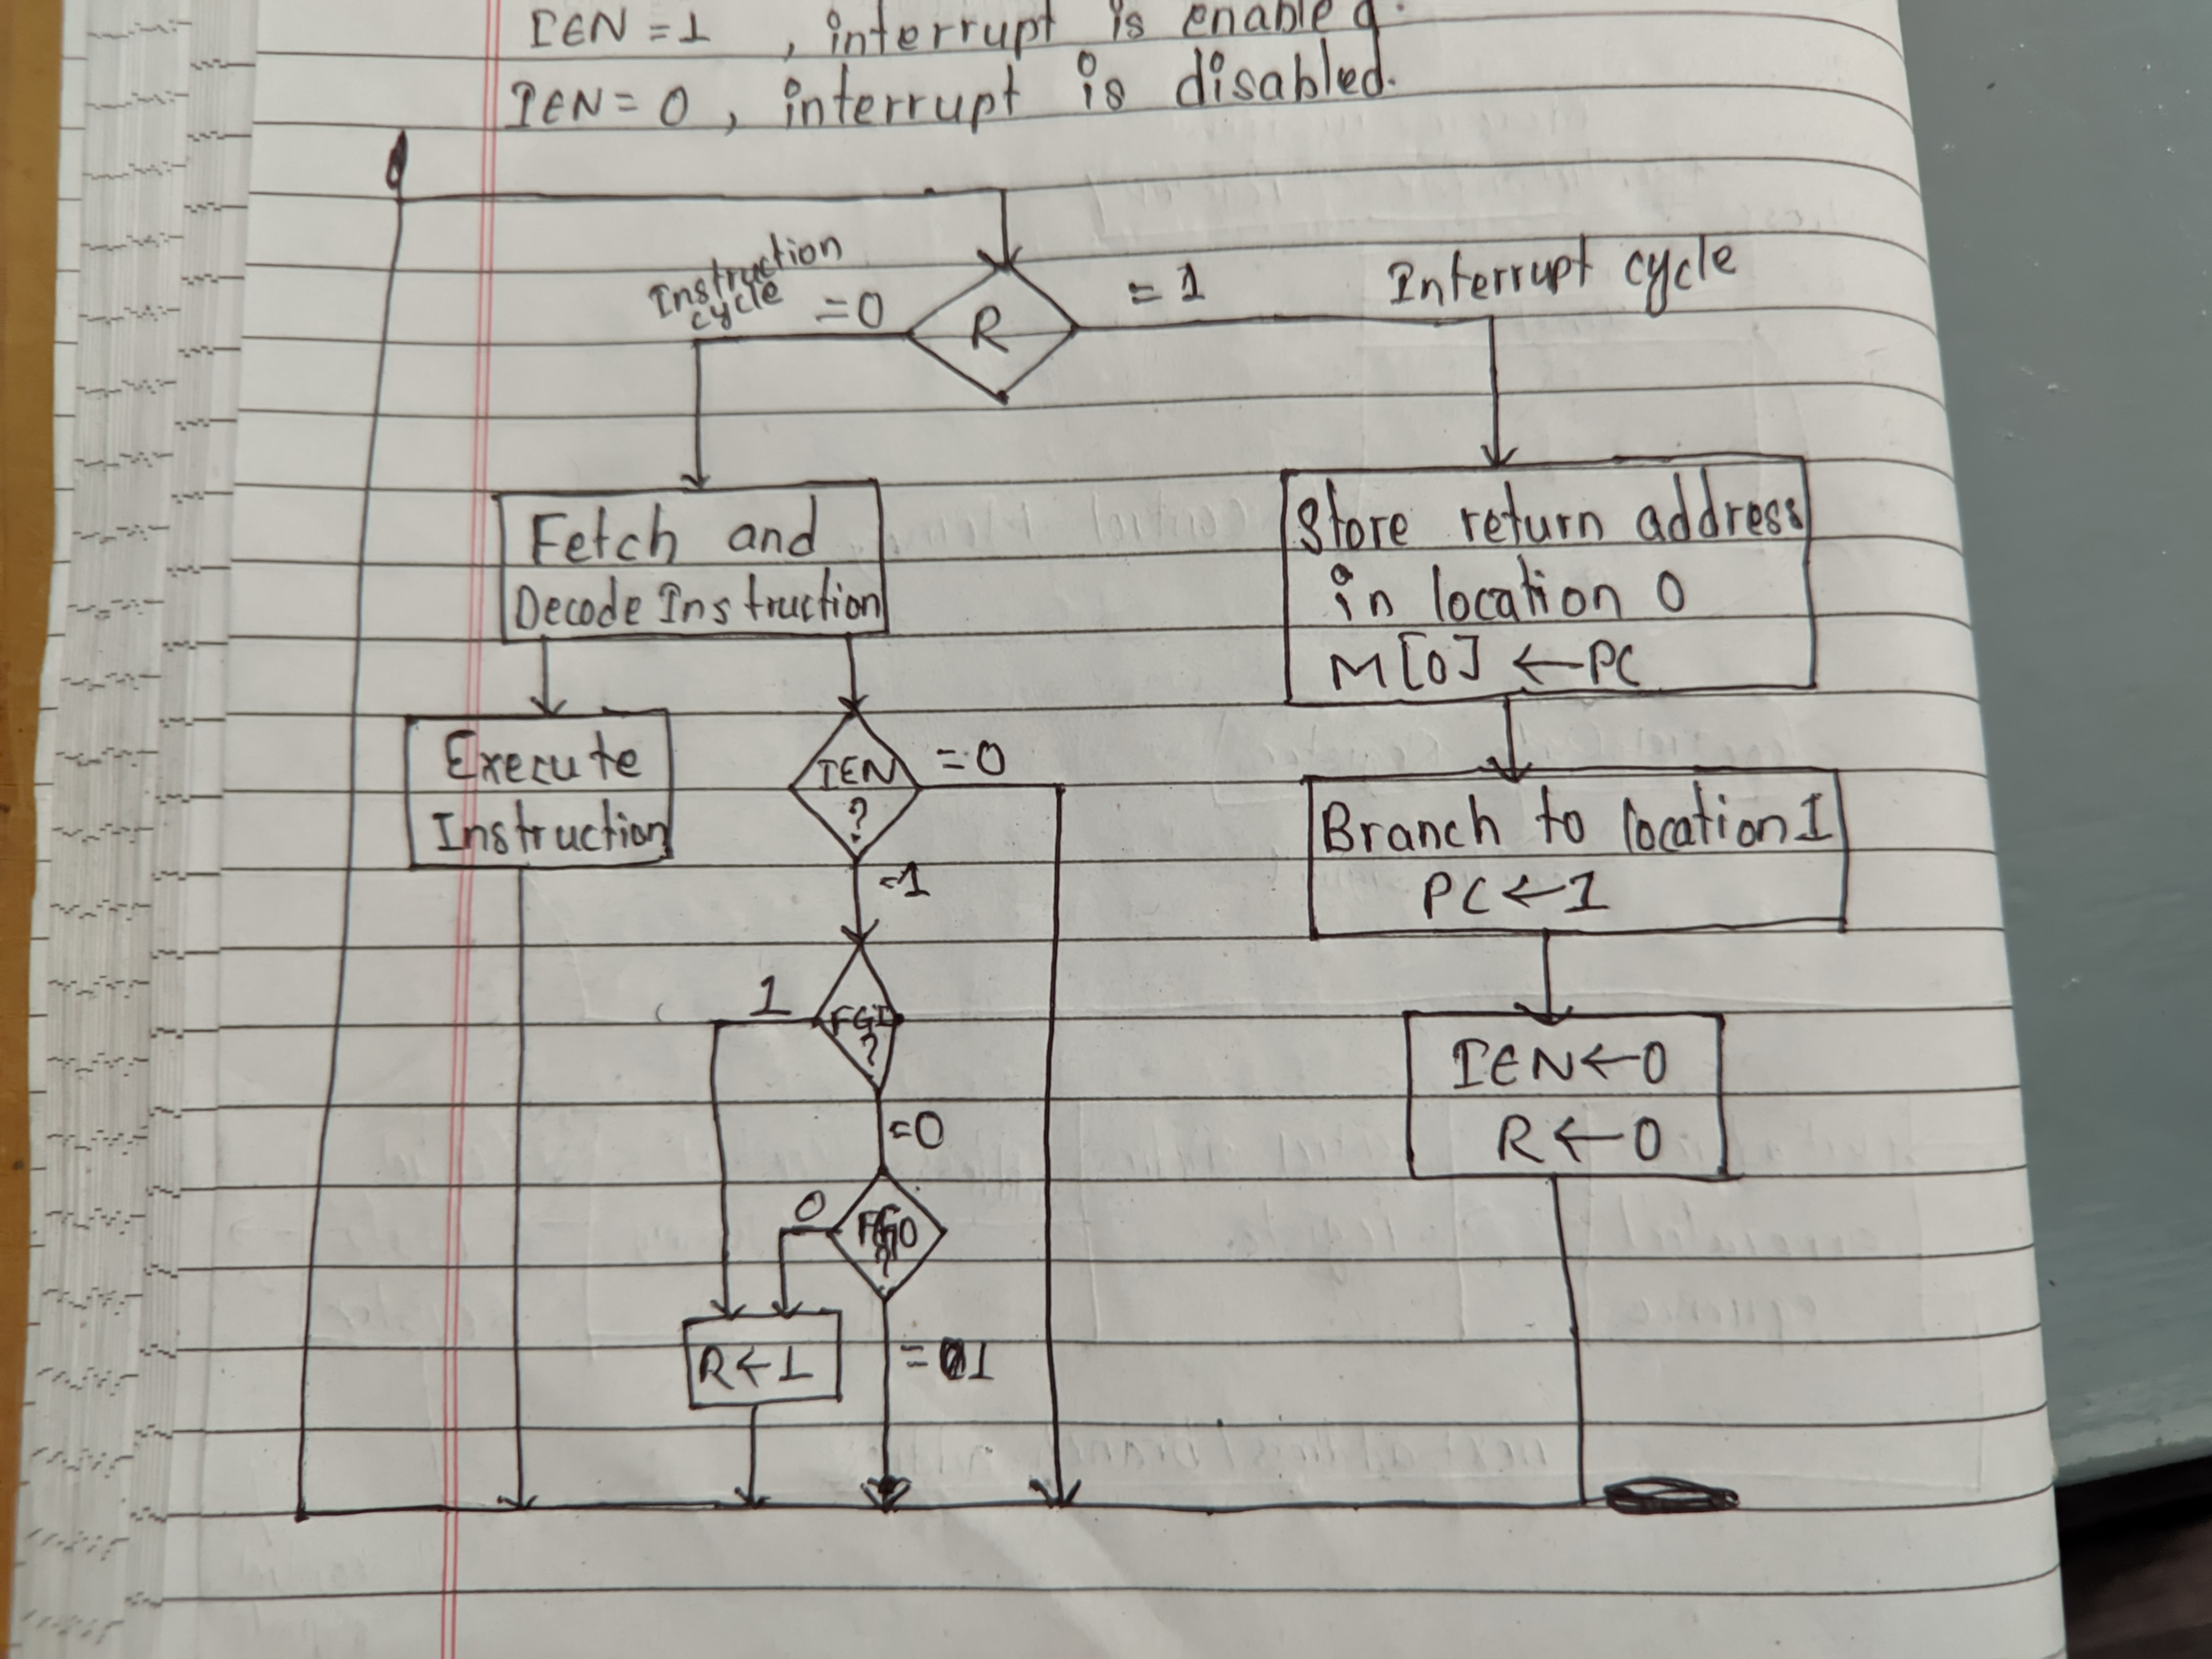 IEN = 1 , interrupt is enabled.
IEN = 0 , interrupt is disabled.
Instruction
cycle
= 0
R
= 1
Interrupt cycle
Fetch and
Decode Instruction
Store return address
in location 0
M[0] ← PC
Execute
Instruction
IEN
?
= 0
=1
Branch to location 1
PC ← 1
1
FGI
?
=0
IEN ← 0
R ← 0
0
FGO
?
R ← 1
= 1